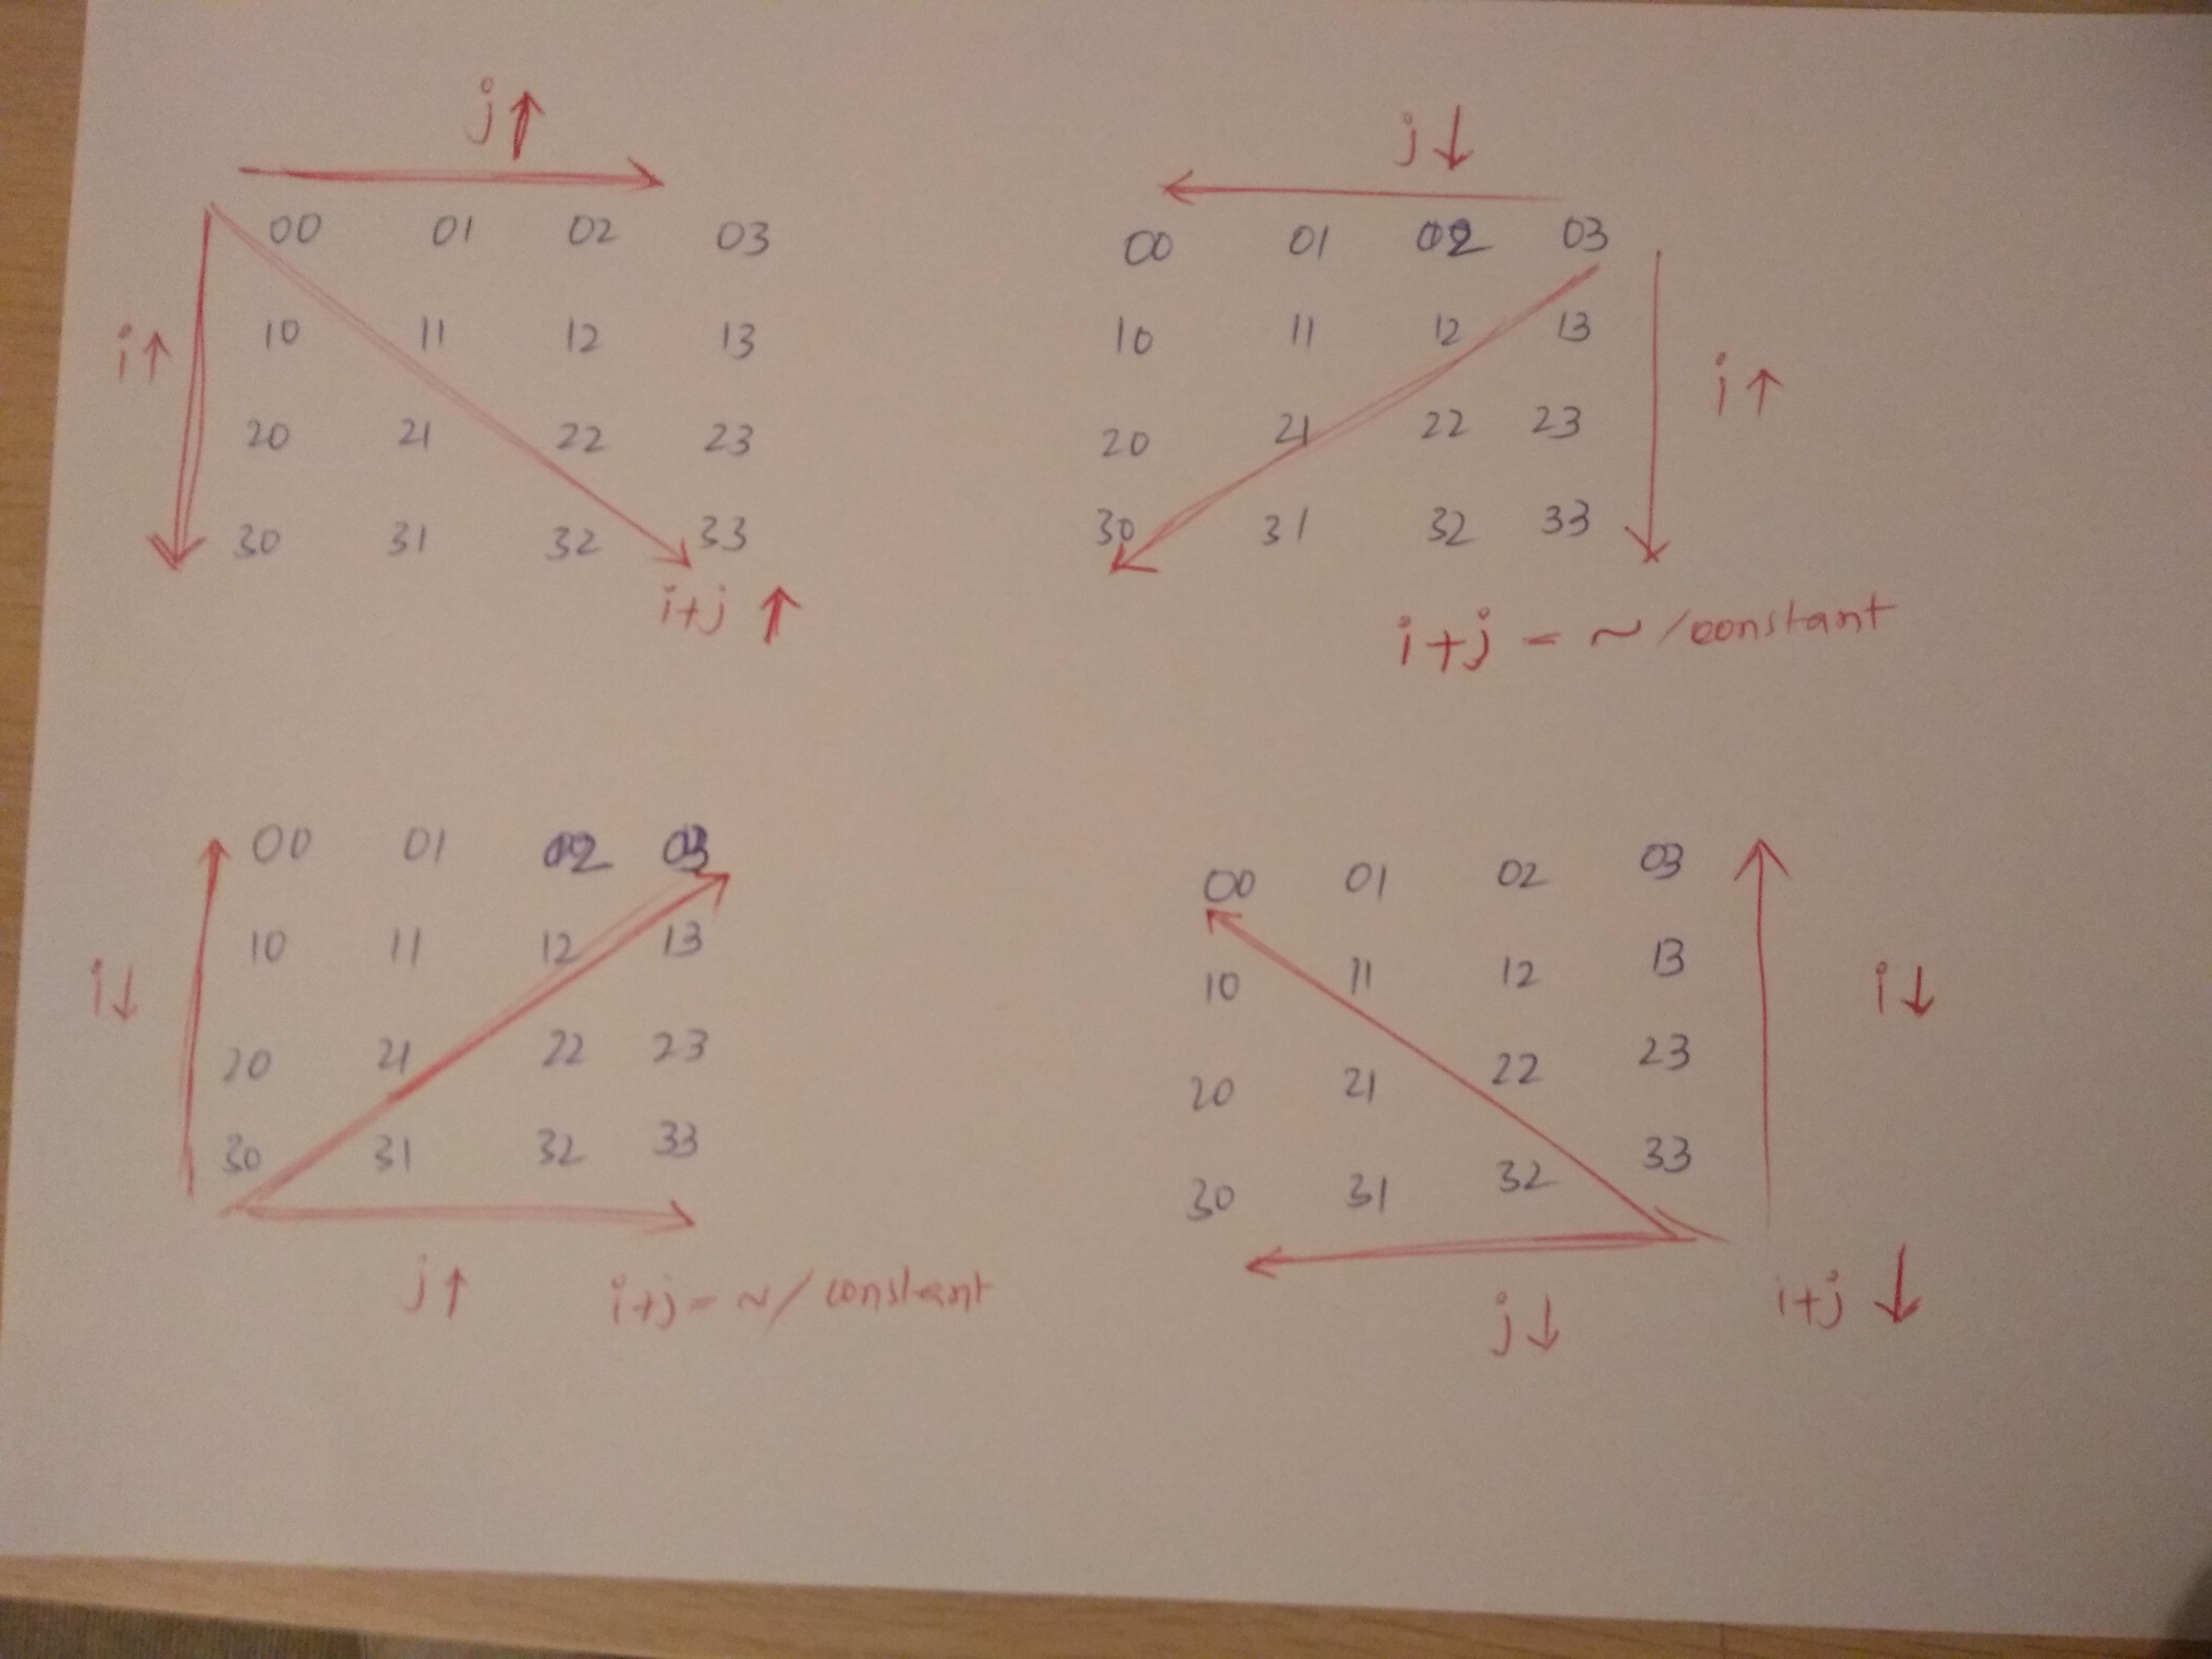 j↑
00 01 02 03
i↑
10 11 12 13
20 21 22 23
30 31 32 33
i+j ↑
j↓
00 01 02 03
10 11 12 13
i↑
20 21 22 23
30 31 32 33
i+j = ~/constant
00 01 02 03
10 11 12 13
i↓
20 21 22 23
30 31 32 33
j↑ i+j = ~/constant
00 01 02 03
10 11 12 13
i↓
20 21 22 23
30 31 32 33
j↓ i+j ↓